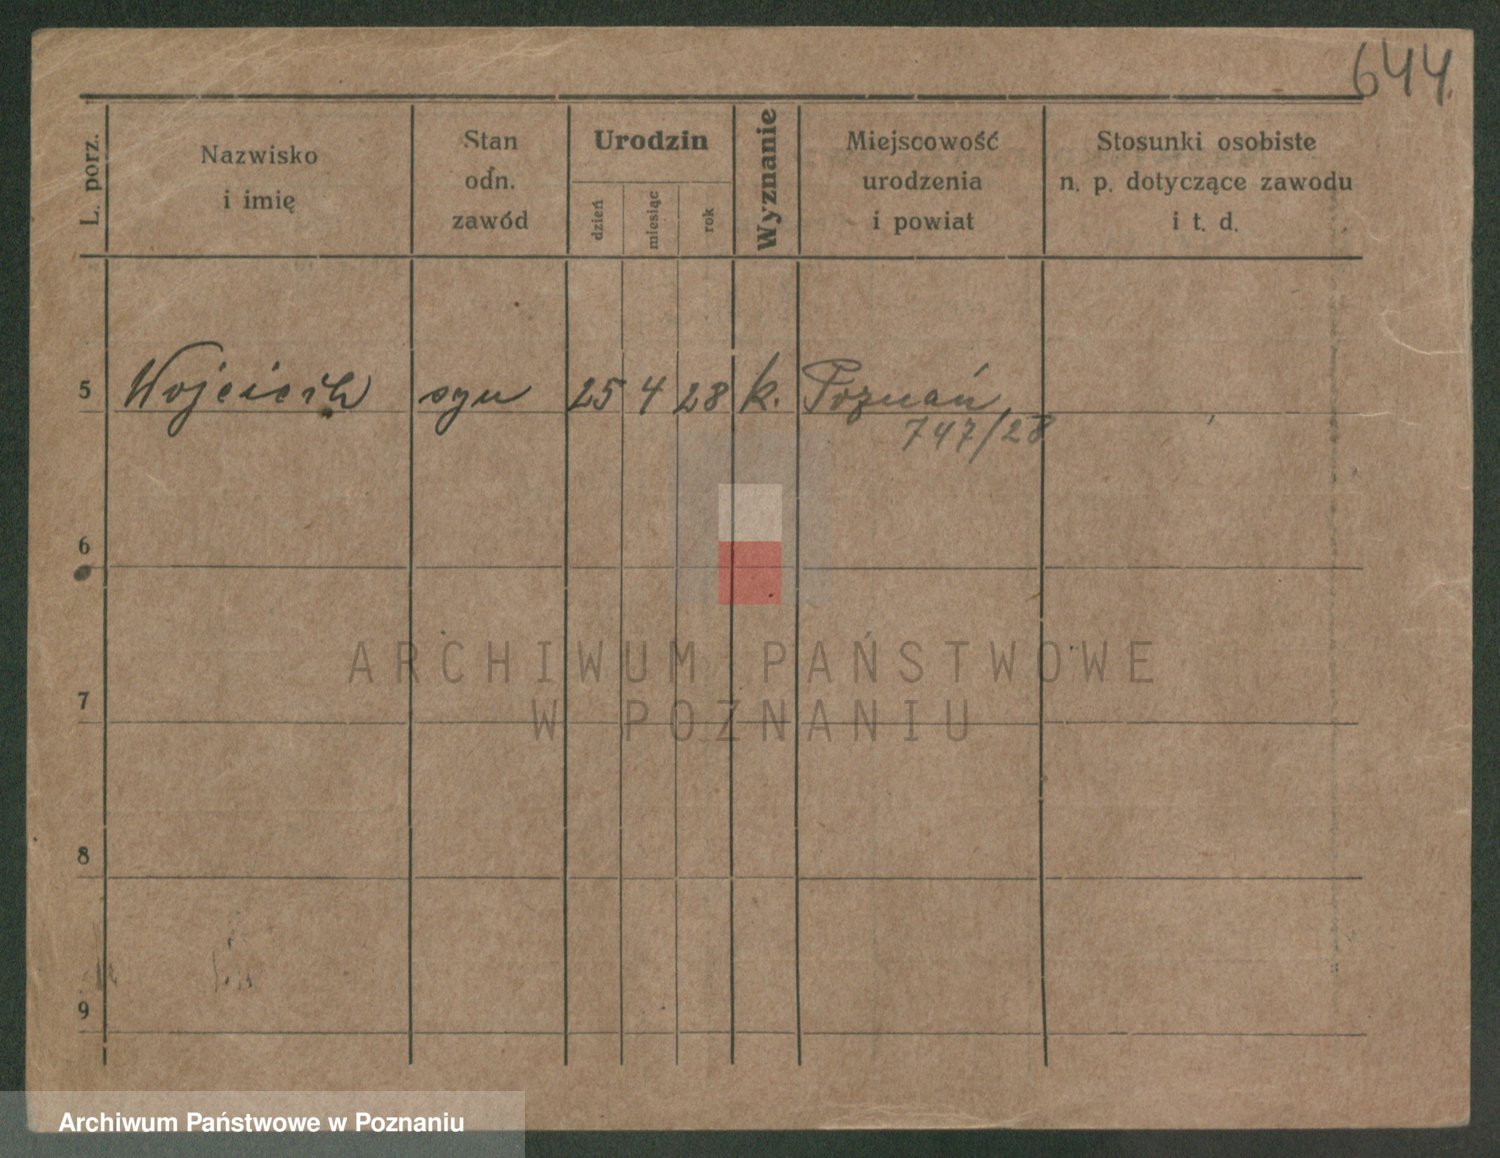 644.
L. porz.
Nazwisko
i imię
Stan
odn.
zawód
Urodzin
dzień
miesiąc
rok
Wyznanie
Miejscowość
urodzenia
i powiat
Stosunki osobiste
n. p. dotyczące zawodu
i t. d.
5 syn 25 4 28 k. Poznań
747/28
6
7
8
9
ARCHIWUM PAŃSTWOWE
W POZNANIU
Archiwum Państwowe w Poznaniu